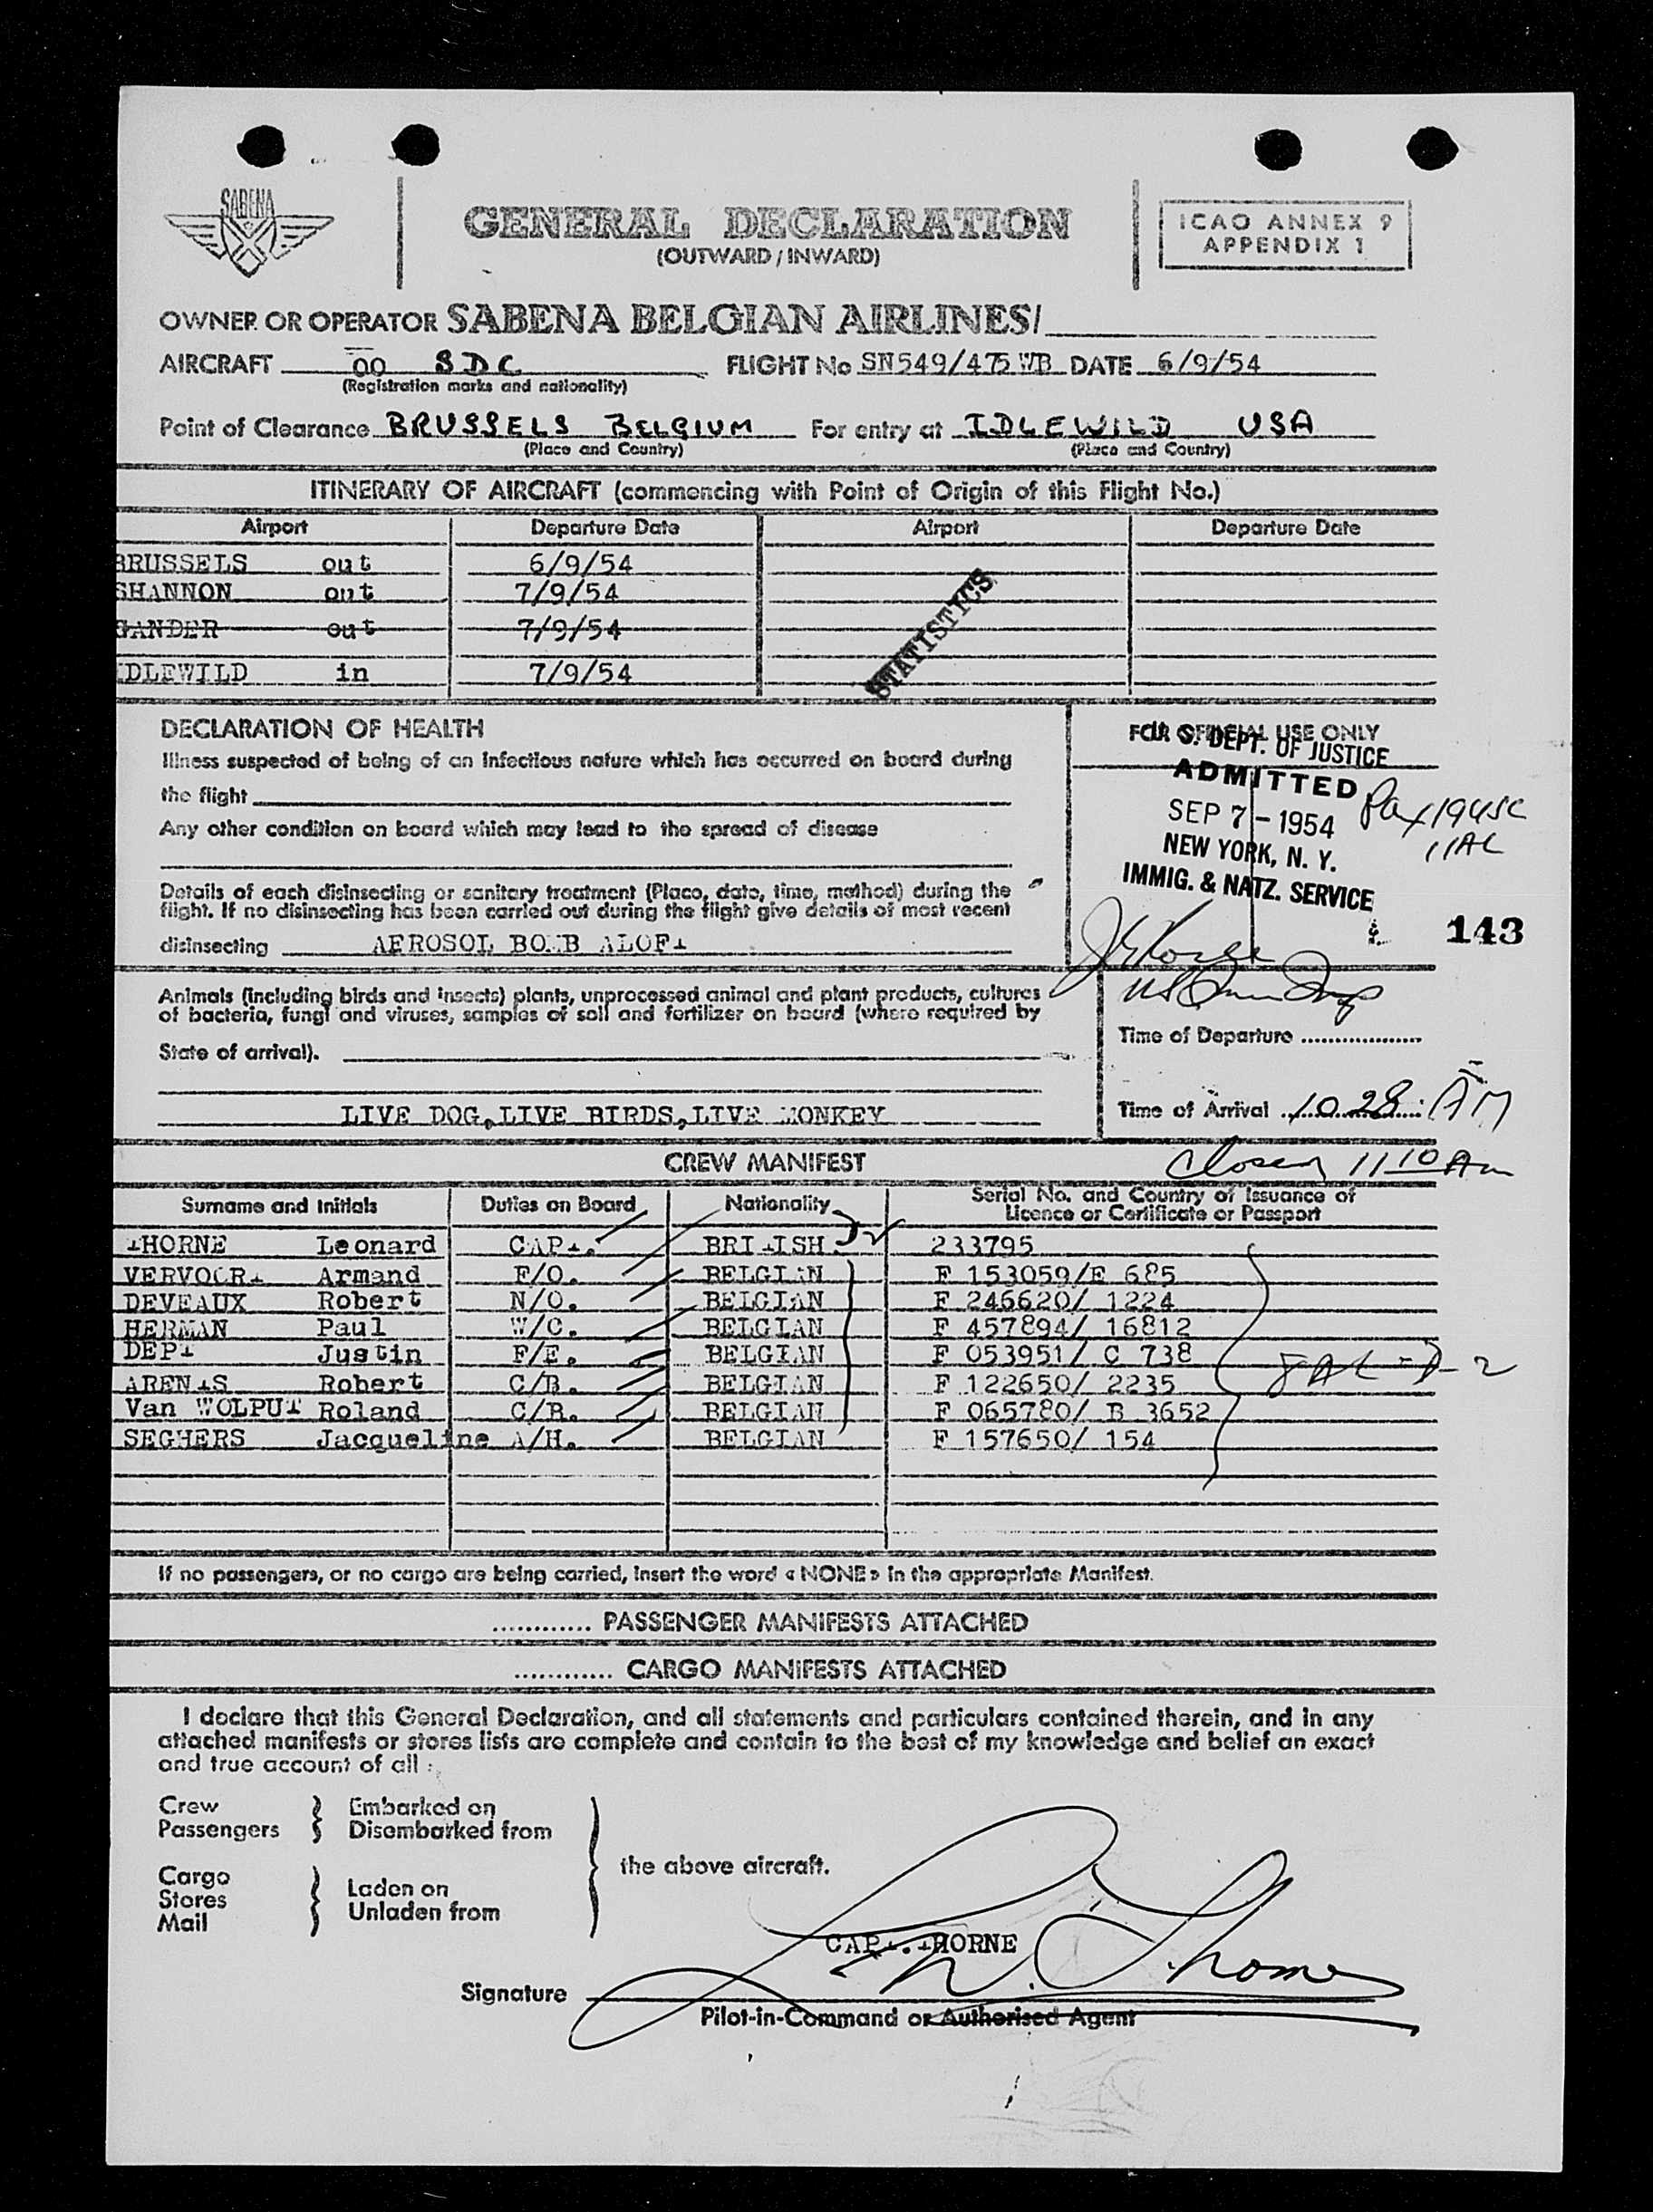 SABENA
GENERAL DECLARATION
(OUTWARD / INWARD)
ICAO ANNEX 9
APPENDIX 1
OWNER OR OPERATOR SABENA BELGIAN AIRLINES/
AIRCRAFT OO SDC FLIGHT No SN549/475 WB DATE 6/9/54
(Registration marks and nationality)
Point of Clearance BRUSSELS BELGIUM For entry at IDLEWILD USA
(Place and Country) (Place and Country)
ITINERARY OF AIRCRAFT (commencing with Point of Origin of this Flight No.)
Airport Departure Date Airport Departure Date
BRUSSELS out 6/9/54
SHANNON out 7/9/54
GANDER out 7/9/54
IDLEWILD in 7/9/54
STATISTICS
DECLARATION OF HEALTH
Illness suspected of being of an infectious nature which has occurred on board during
the flight
Any other condition on board which may lead to the spread of disease
Details of each disinsecting or sanitary treatment (Place, date, time, method) during the
flight. If no disinsecting has been carried out during the flight give details of most recent
disinsecting AEROSOL BOMB ALOFT
FOR OFFICIAL USE ONLY
U. S. DEPT. OF JUSTICE
ADMITTED
SEP 7 - 1954
NEW YORK, N. Y.
IMMIG. & NATZ. SERVICE
Pax 194SC
11AL
143
Animals (including birds and insects) plants, unprocessed animal and plant products, cultures
of bacteria, fungi and viruses, samples of soil and fertilizer on board (where required by
State of arrival).
LIVE DOG, LIVE BIRDS, LIVE MONKEY
Time of Departure ...................
Time of Arrival 10 28 AM
Closed 11 10 Am
CREW MANIFEST
Surname and Initials Duties on Board Nationality Serial No. and Country of Issuance of
Licence or Certificate or Passport
THORNE Leonard CAPT. BRITISH 233795
VERVOORT Armand F/O. BELGIAN F 153059/E 685
DEVEAUX Robert N/O. BELGIAN F 246620/ 1224
HERMAN Paul W/O. BELGIAN F 457894/ 16812
DEPT Justin F/E. BELGIAN F 053951/ C 738
ARENTS Robert C/B. BELGIAN F 122650/ 2235
Van WOLPUT Roland C/B. BELGIAN F 065780/ B 3652
SEGHERS Jacqueline A/H. BELGIAN F 157650/ 154
If no passengers, or no cargo are being carried, insert the word « NONE » in the appropriate Manifest.
............ PASSENGER MANIFESTS ATTACHED
............ CARGO MANIFESTS ATTACHED
I declare that this General Declaration, and all statements and particulars contained therein, and in any
attached manifests or stores lists are complete and contain to the best of my knowledge and belief an exact
and true account of all :
Crew
Passengers
Embarked on
Disembarked from
Cargo
Stores
Mail
Laden on
Unladen from
the above aircraft.
CAPT. THORNE
Signature
Pilot-in-Command or Authorised Agent